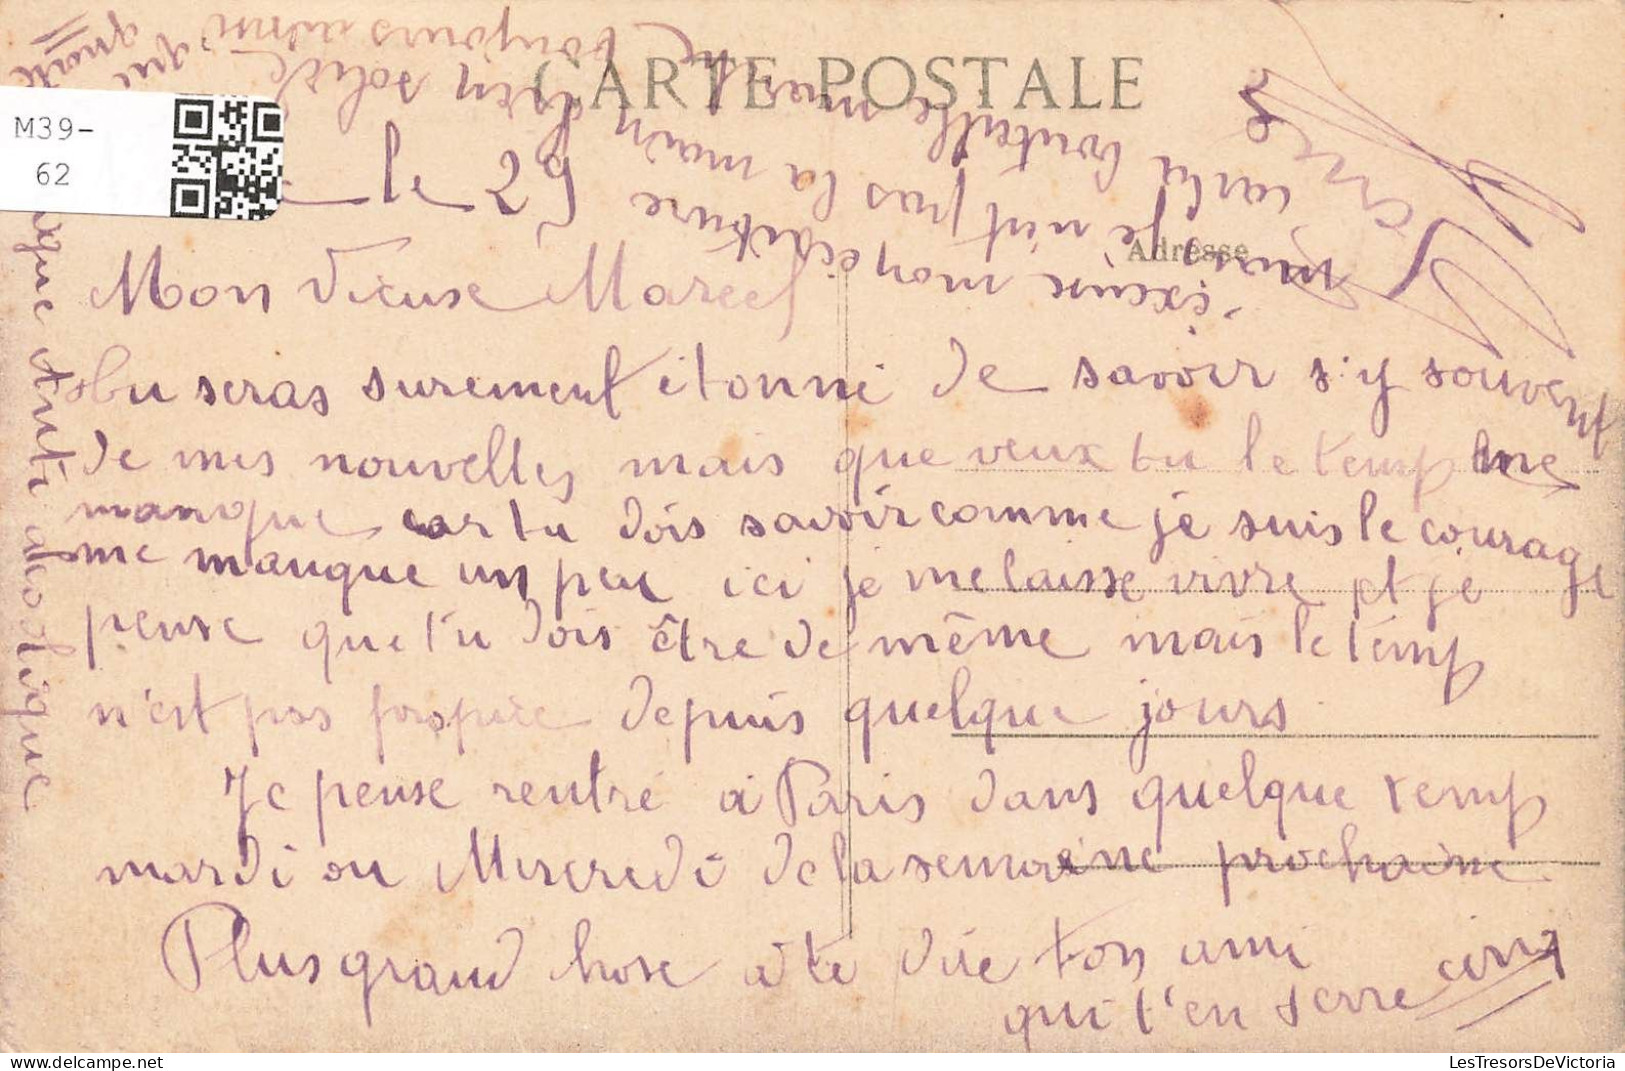 CARTE POSTALE
M39-
62
le 29
Adresse
Mon Vieuse Marcel
tu seras surement étonné de savoir s'y souvent
de mes nouvelles mais que veux tu le temp me
manque car tu dois savoir comme je suis le courage
me manque un peu ici je me laisse vivre et je
pense que tu dois être de même mais le temp
n'est pas propice depuis quelque jours
Je pense rentré à Paris dans quelque temp
mardi ou Mercredi de la semaine prochaine
Plus grand hose à te dire ton ami
qui t'en serre cinq
excuse mon ecriture
je n'est pas la main
bien solide
car la bouteille
toujours
que
alcoolique
LesTresorsDeVictoria